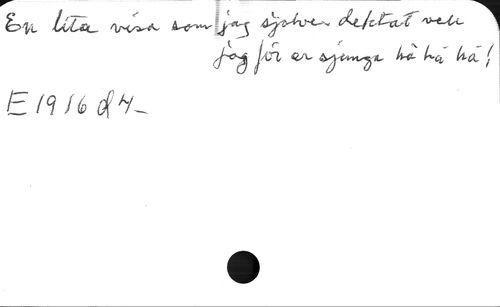 En lita visa som jag sjelver dektat vell
jag för er sjunga hå hå hå!
E 1916 d 4-